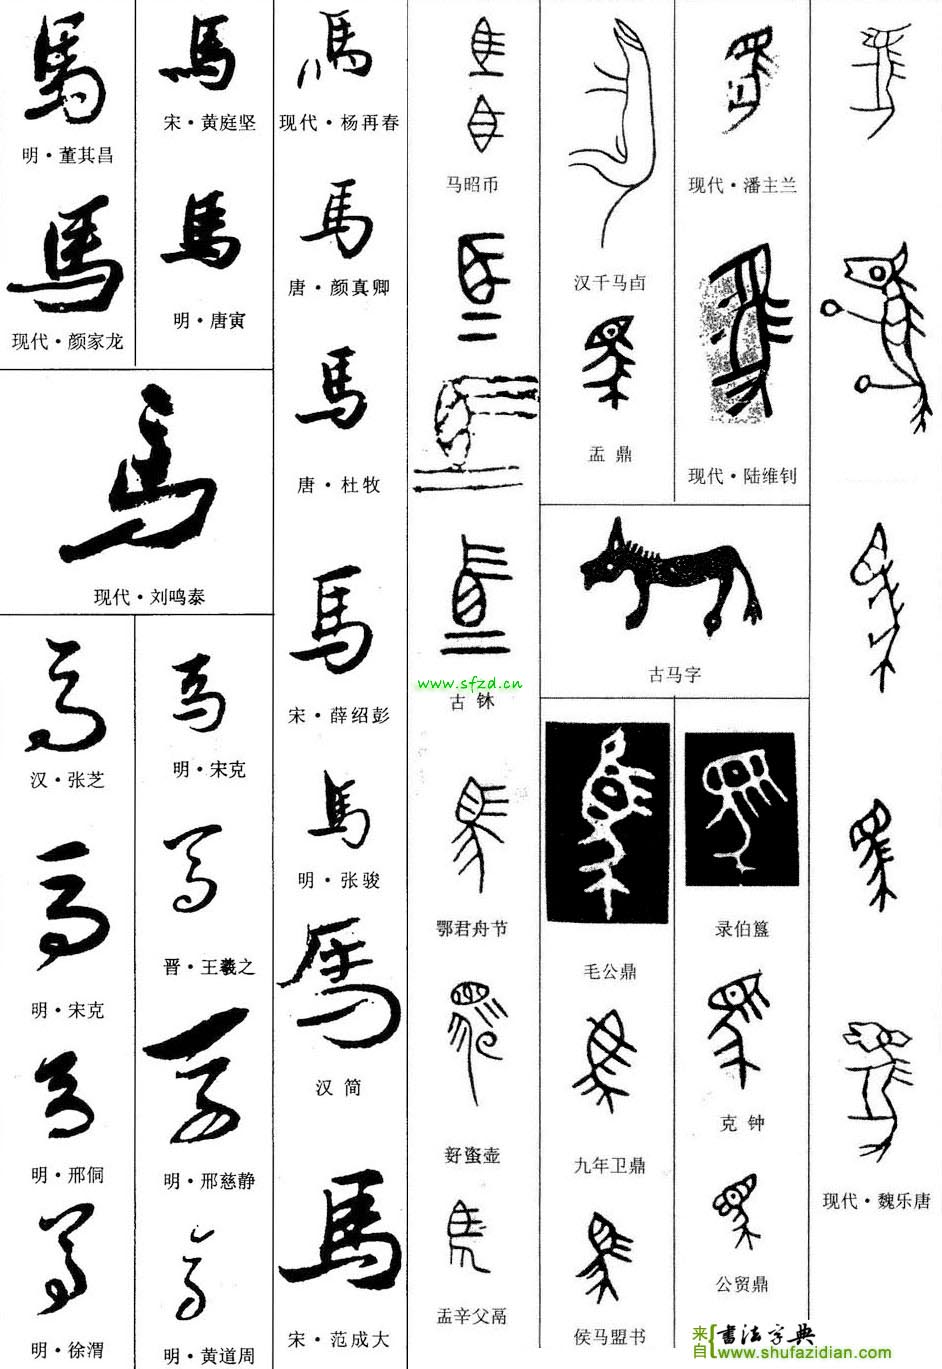 馬
明·董其昌
馬
现代·颜家龙
馬
宋·黄庭坚
馬
明·唐寅
馬
现代·刘鸣泰
馬
汉·张芝
馬
明·宋克
馬
明·邢侗
馬
明·徐渭
馬
明·宋克
馬
晋·王羲之
馬
明·邢慈静
馬
明·黄道周
馬
现代·杨再春
馬
唐·颜真卿
馬
唐·杜牧
馬
宋·薛绍彭
馬
明·张骏
馬
汉 简
馬
宋·范成大
马昭币
www.sfzd.cn
古 钵
鄂君舟节
壶
盂辛父鬲
汉千马卤
盂 鼎
现代·潘主兰
现代·陆维钊
古马字
毛公鼎
九年卫鼎
侯马盟书
录伯簋
克 钟
公贸鼎
现代·魏乐唐
来自{书法字典
www.shufazidian.com